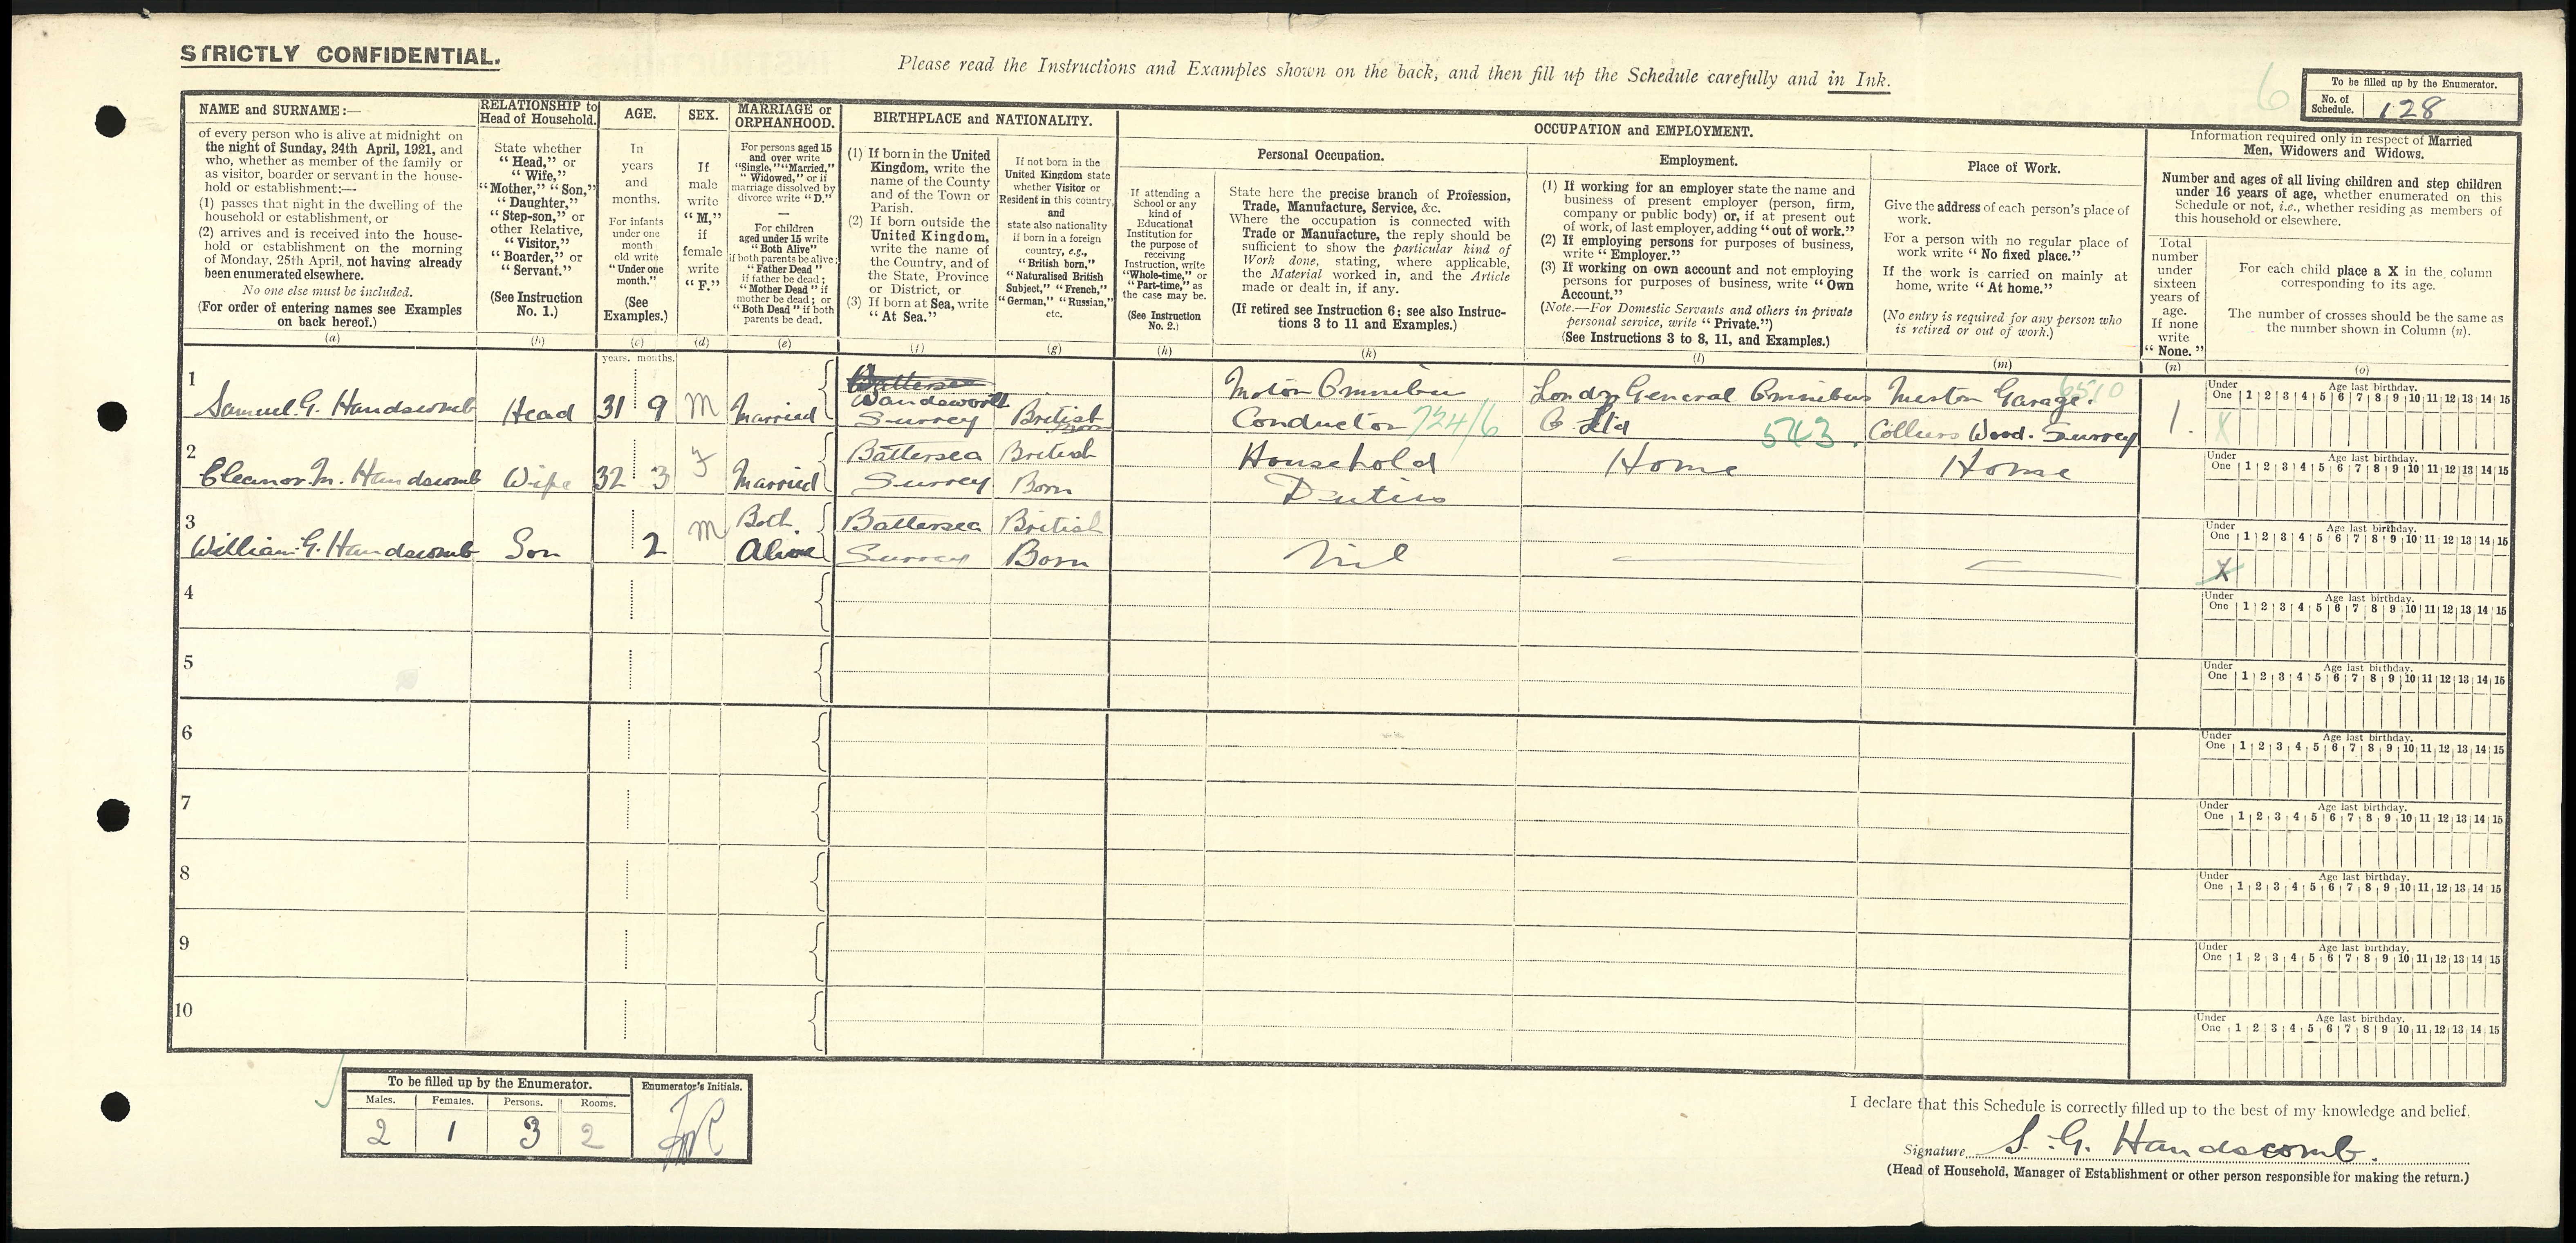 STRICTLY CONFIDENTIAL.
Please read the Instructions and Examples shown on the back, and then fill up the Schedule carefully and in Ink.
6
To be filled up by the Enumerator.
No. of Schedule. 128
NAME and SURNAME:—
of every person who is alive at midnight on
the night of Sunday, 24th April, 1921, and
who, whether as member of the family or
as visitor, boarder or servant in the house-
hold or establishment:—
(1) passes that night in the dwelling of the
household or establishment, or
(2) arrives and is received into the house-
hold or establishment on the morning
of Monday, 25th April, not having already
been enumerated elsewhere.
No one else must be included.
(For order of entering names see Examples
on back hereof.)
(a)
RELATIONSHIP to
Head of Household.
State whether
"Head," or
"Wife,"
"Mother," "Son,"
"Daughter,"
"Step-son," or
other Relative,
"Visitor,"
"Boarder," or
"Servant."
(See Instruction
No. 1.)
(b)
AGE.
In
years
and
months.
For infants
under one
month
old write
"Under one
month."
(See
Examples.)
(c)
SEX.
If
male
write
"M,"
if
female
write
"F."
(d)
MARRIAGE or
ORPHANHOOD.
For persons aged 15
and over write
"Single," "Married,"
"Widowed," or if
marriage dissolved by
divorce write "D."
—
For children
aged under 15 write
"Both Alive"
if both parents be alive;
"Father Dead"
if father be dead;
"Mother Dead" if
mother be dead; or
"Both Dead" if both
parents be dead.
(e)
BIRTHPLACE and NATIONALITY.
(1) If born in the United
Kingdom, write the
name of the County
and of the Town or
Parish.
(2) If born outside the
United Kingdom,
write the name of
the Country, and of
the State, Province
or District, or
(3) If born at Sea, write
"At Sea."
(f)
If not born in the
United Kingdom state
whether Visitor or
Resident in this country,
and
state also nationality
if born in a foreign
country, e.g.,
"British born,"
"Naturalised British
Subject," "French,"
"German," "Russian,"
etc.
(g)
OCCUPATION and EMPLOYMENT.
If attending a
School or any
kind of
Educational
Institution for
the purpose of
receiving
Instruction, write
"Whole-time," or
"Part-time," as
the case may be.
(See Instruction
No. 2.)
(h)
Personal Occupation.
State here the precise branch of Profession,
Trade, Manufacture, Service, &c.
Where the occupation is connected with
Trade or Manufacture, the reply should be
sufficient to show the particular kind of
Work done, stating, where applicable,
the Material worked in, and the Article
made or dealt in, if any.
(If retired see Instruction 6; see also Instruc-
tions 3 to 11 and Examples.)
(k)
Employment.
(1) If working for an employer state the name and
business of present employer (person, firm,
company or public body) or, if at present out
of work, of last employer, adding "out of work."
(2) If employing persons for purposes of business,
write "Employer."
(3) If working on own account and not employing
persons for purposes of business, write "Own
Account."
(Note.—For Domestic Servants and others in private
personal service, write "Private.")
(See Instructions 3 to 8, 11, and Examples.)
(l)
Place of Work.
Give the address of each person's place of
work.
For a person with no regular place of
work write "No fixed place."
If the work is carried on mainly at
home, write "At home."
(No entry is required for any person who
is retired or out of work.)
(m)
Information required only in respect of Married
Men, Widowers and Widows.
Number and ages of all living children and step children
under 16 years of age, whether enumerated on this
Schedule or not, i.e., whether residing as members of
this household or elsewhere.
Total
number
under
sixteen
years of
age.
If none
write
"None."
(n)
For each child place a X in the column
corresponding to its age.
The number of crosses should be the same as
the number shown in Column (n).
(o)
years. months.
1 Samuel. G. Handscomb Head 31 9 M Married Battersea Wandsworth Surrey British Born
Motor Omnibus Conductor 724/6
London General Omnibus Co. Ltd 543.
Merton Garage. 6510 Colliers Wood. Surrey
1. X
Under One 1 2 3 4 5 6 7 8 9 10 11 12 13 14 15 Age last birthday.
2 Eleanor. M. Handscomb Wife 32 3 F Married Battersea Surrey British Born
Household Duties Home Home
Under One 1 2 3 4 5 6 7 8 9 10 11 12 13 14 15 Age last birthday.
3 William. G. Handscomb Son 2 M Both. Alive Battersea Surrey British Born
Nil — —
X
Under One 1 2 3 4 5 6 7 8 9 10 11 12 13 14 15 Age last birthday.
4
Under One 1 2 3 4 5 6 7 8 9 10 11 12 13 14 15 Age last birthday.
5
Under One 1 2 3 4 5 6 7 8 9 10 11 12 13 14 15 Age last birthday.
6
Under One 1 2 3 4 5 6 7 8 9 10 11 12 13 14 15 Age last birthday.
7
Under One 1 2 3 4 5 6 7 8 9 10 11 12 13 14 15 Age last birthday.
8
Under One 1 2 3 4 5 6 7 8 9 10 11 12 13 14 15 Age last birthday.
9
Under One 1 2 3 4 5 6 7 8 9 10 11 12 13 14 15 Age last birthday.
10
Under One 1 2 3 4 5 6 7 8 9 10 11 12 13 14 15 Age last birthday.
To be filled up by the Enumerator.
Males. Females. Persons. Rooms.
2 1 3 2
Enumerator's Initials.
I declare that this Schedule is correctly filled up to the best of my knowledge and belief.
Signature S. G. Handscomb.
(Head of Household, Manager of Establishment or other person responsible for making the return.)